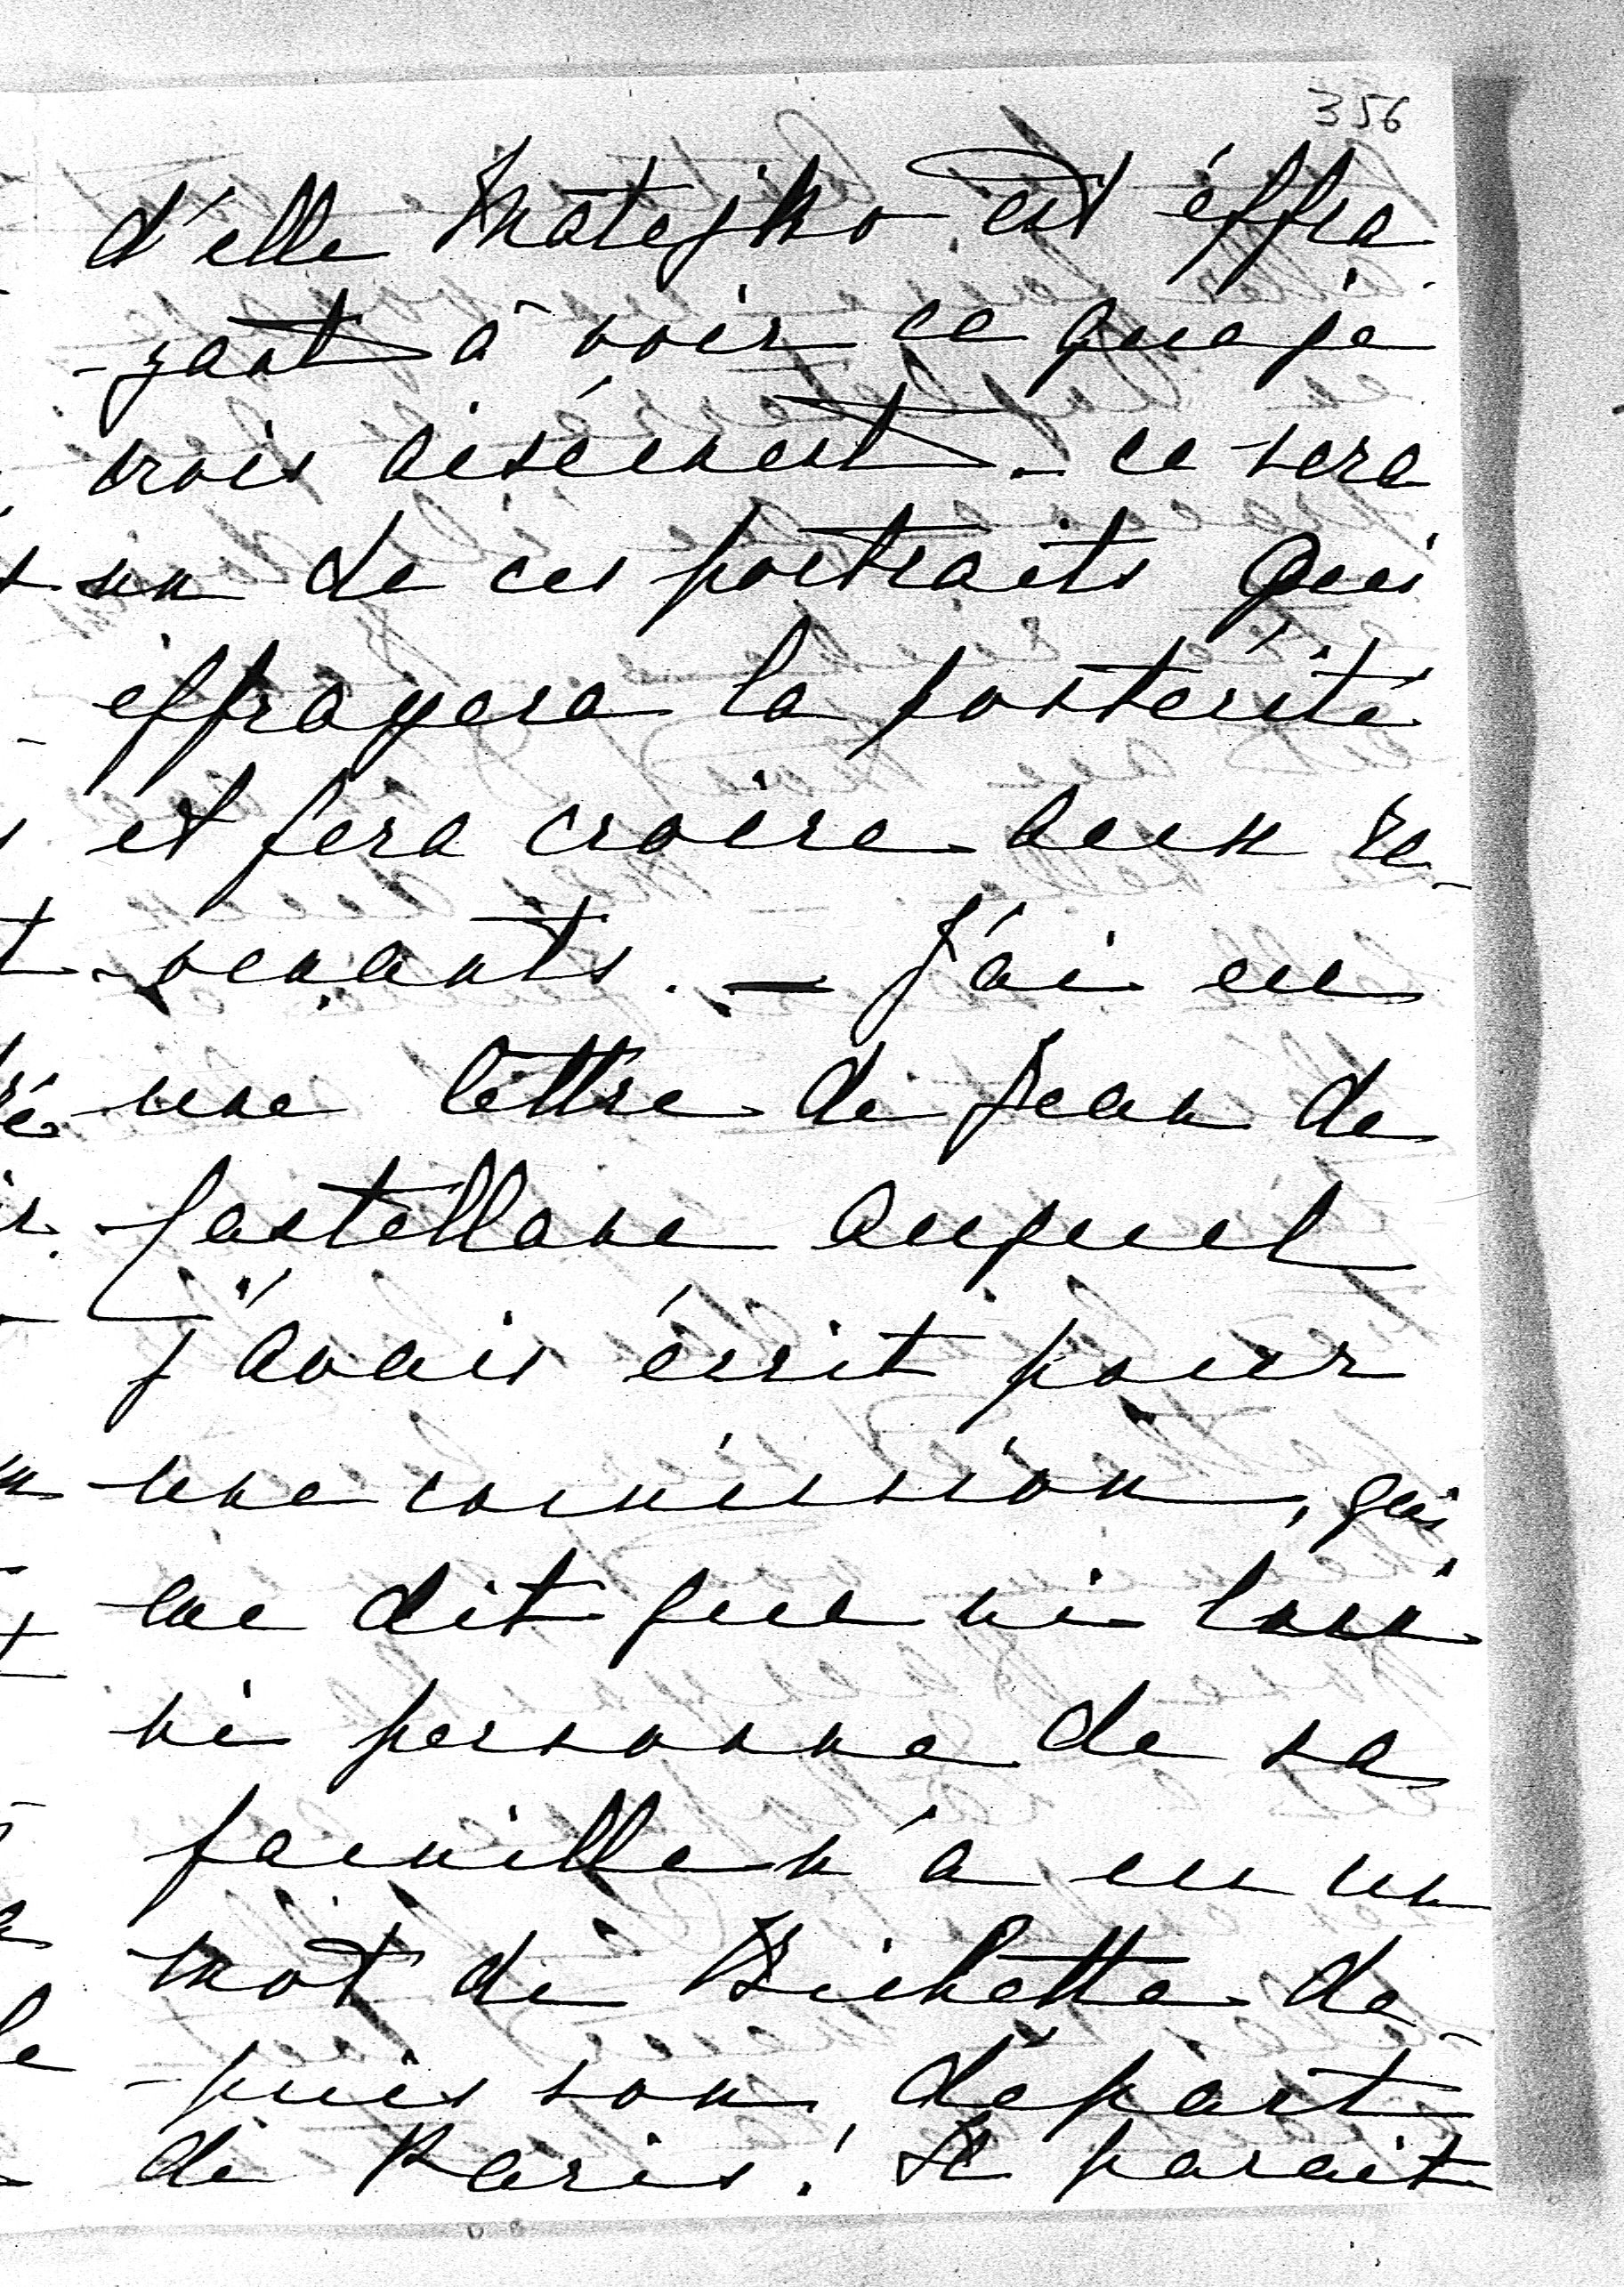 356
d'elle Matejko est éffra
-yant à voir ce que je
crois aisément - ce sera
un de ces portraits qui
éffrayera la postérité
et fera croire aux re-
-venants. — J'ai eu
une lettre de Jean de
Castellane auquel
j'avais écrit pour
une comission, qui
me dit que ni lui
ni personne de sa
famille n'a eu un
mot de Bichette de-
-puis son départ
de Paris! Il parait